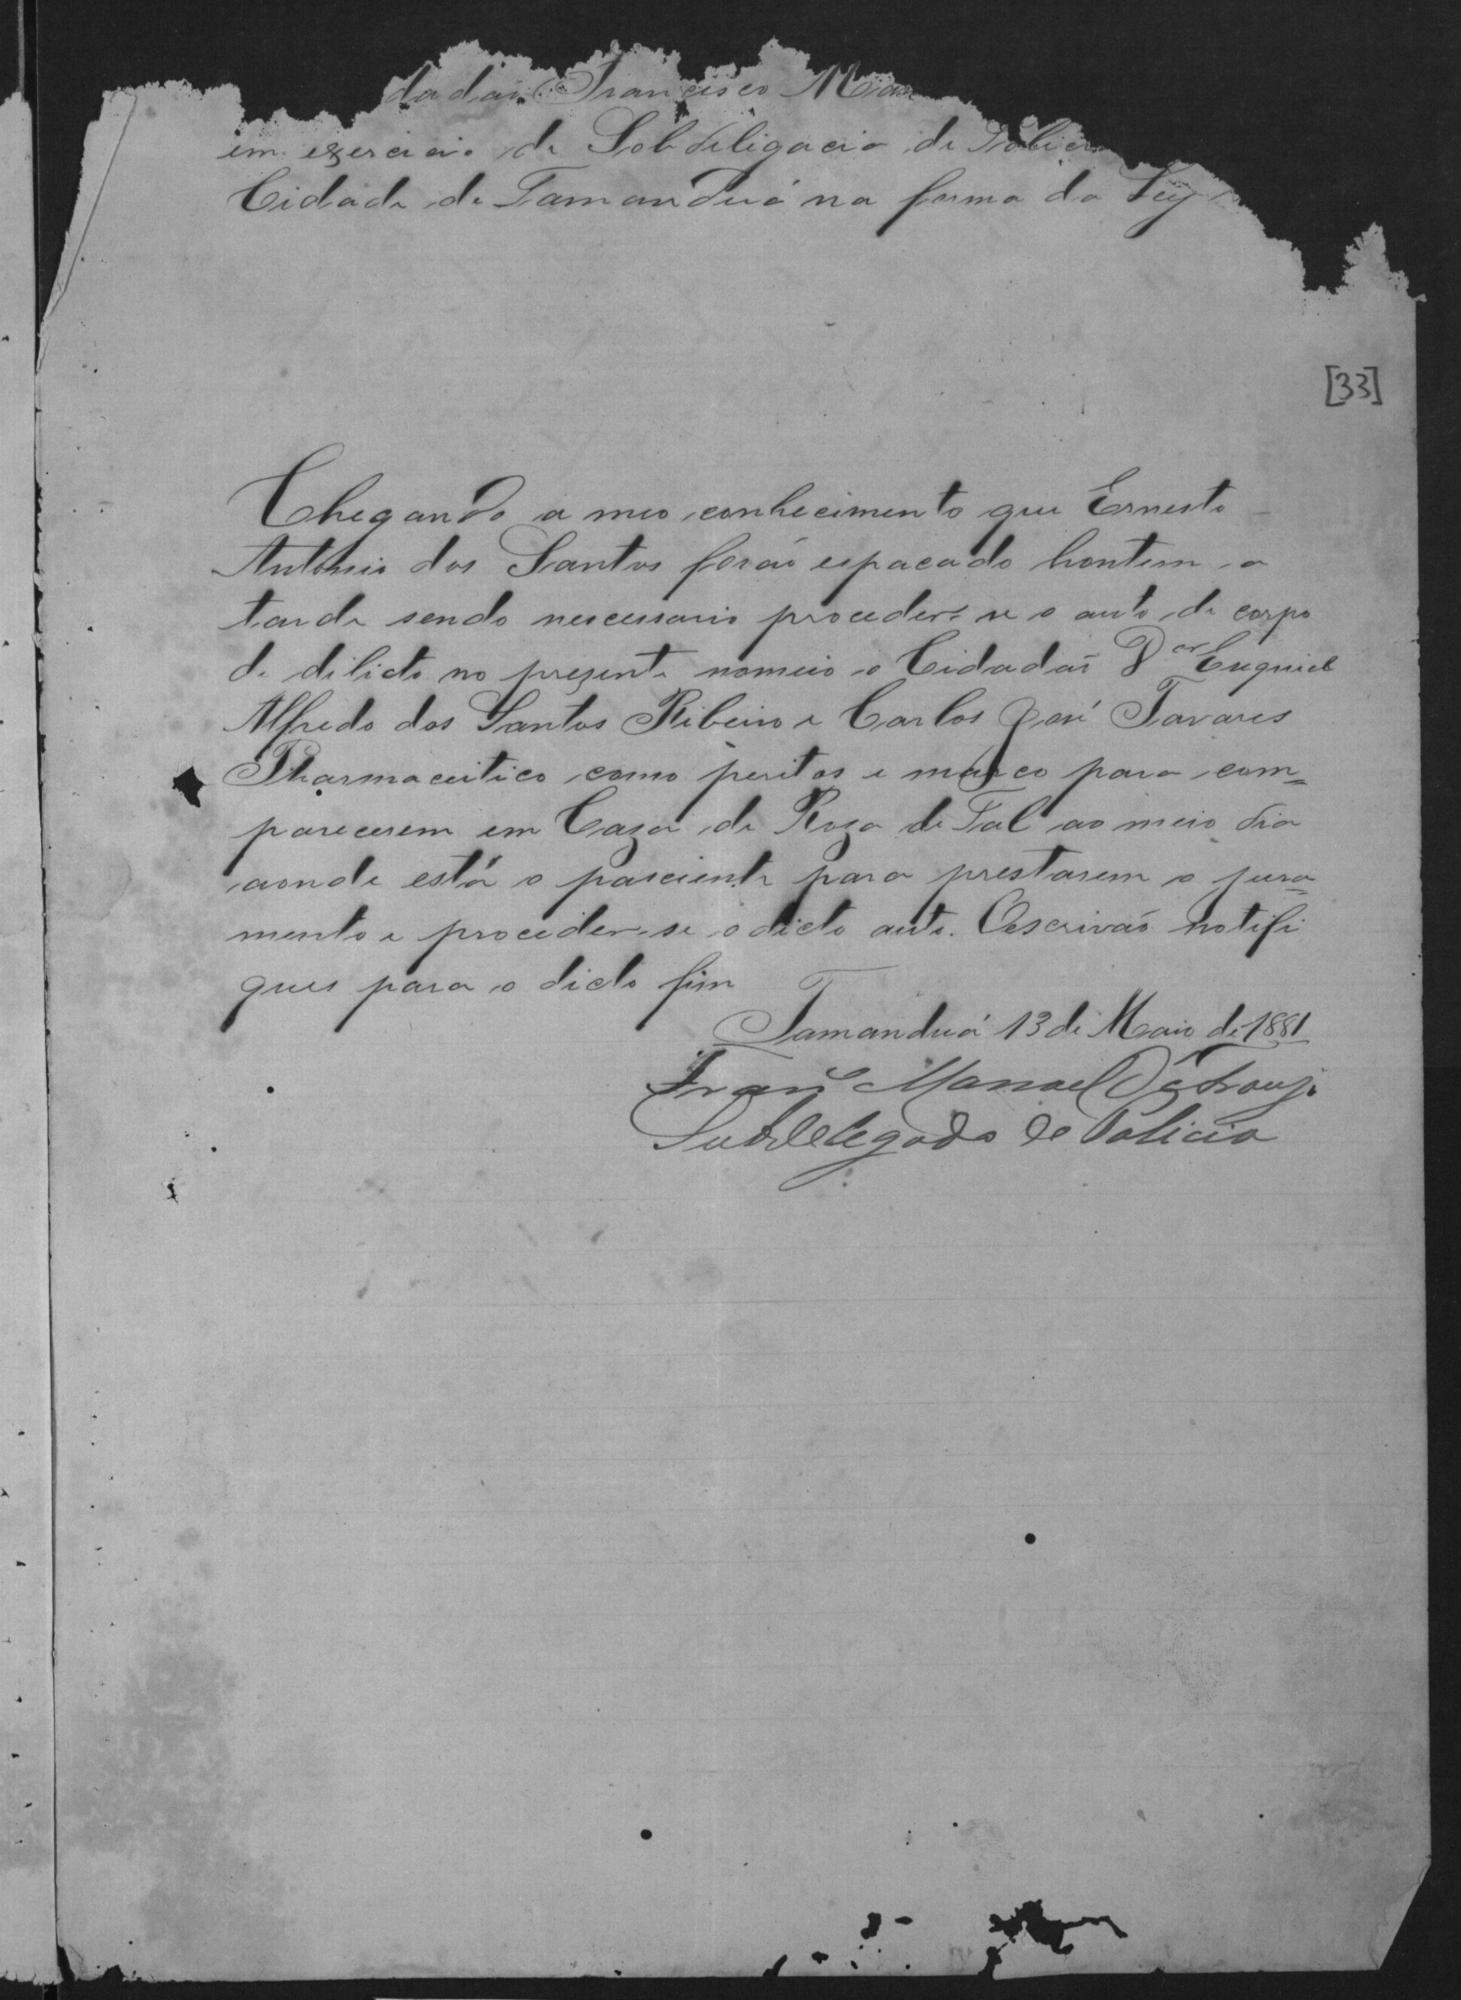 dadão Francisco Man
em exercicio de Sobdiligacia de Policia
Cidade de Tamanduá na forma da Ley
[33]
Chegando a meo conhecimento que Ernesto
Antonio dos Santos forão espacado hontem a
tarde sendo nescessario proceder-se o auto de corpo
de dilicto no prezente nomeio o Cidadão Dor Ezequiel
Alfredo dos Santos Ribeiro e Carlos José Tavares
Pharmaceitico como peritos e marco para com=
parecerem em Caza de Roza de Tal ao meio dia
aonde está o pasciente para prestarem o jura
mento e proceder-se o dicto auto. Oescrivão notifi
ques para o dicto fim
Tamanduá 13 de Maio de 1881
Franco Manoel d'Araujo
Subdelegado de Policia